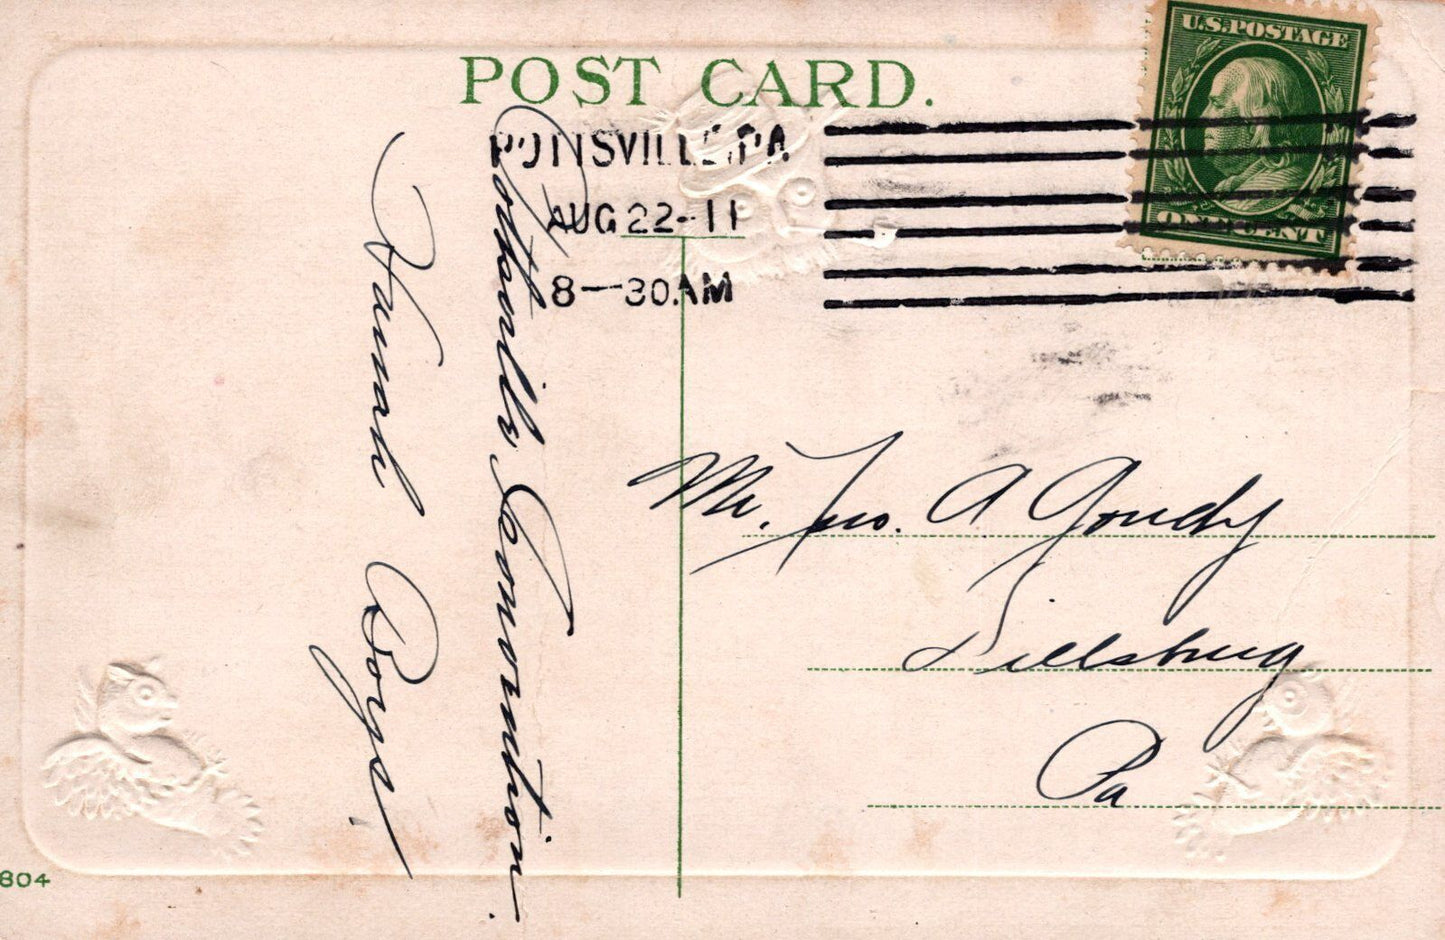 POST CARD.
U.S. POSTAGE
ONE CENT
POTTSVILLE, PA
AUG 22-11
8—30AM
Pottsville Convention.
Hurrah Boys!
Mr. Jno. A Goudy
Dillsburg
Pa
804